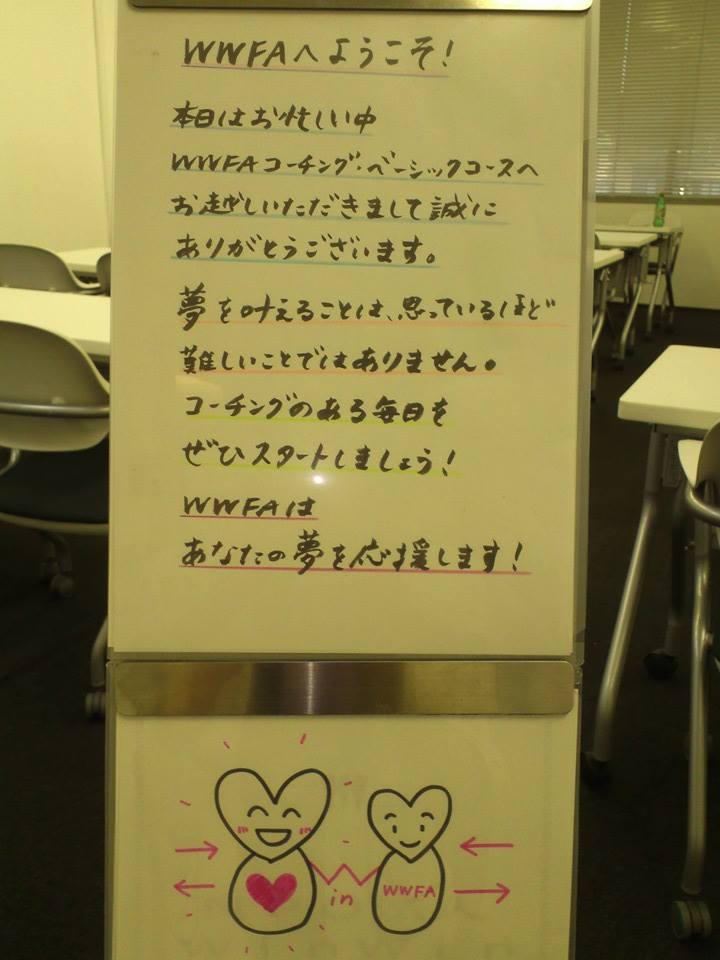 WWFAへようこそ!
本日はお忙しい中
WWFAコーチング・ベーシックコースへ
お越しいただきまして誠に
ありがとうございます。
夢を叶えることは、思っているほど
難しいことではありません。
コーチングのある毎日を
ぜひスタートしましょう!
WWFAは
あなたの夢を応援します!
in
WWFA